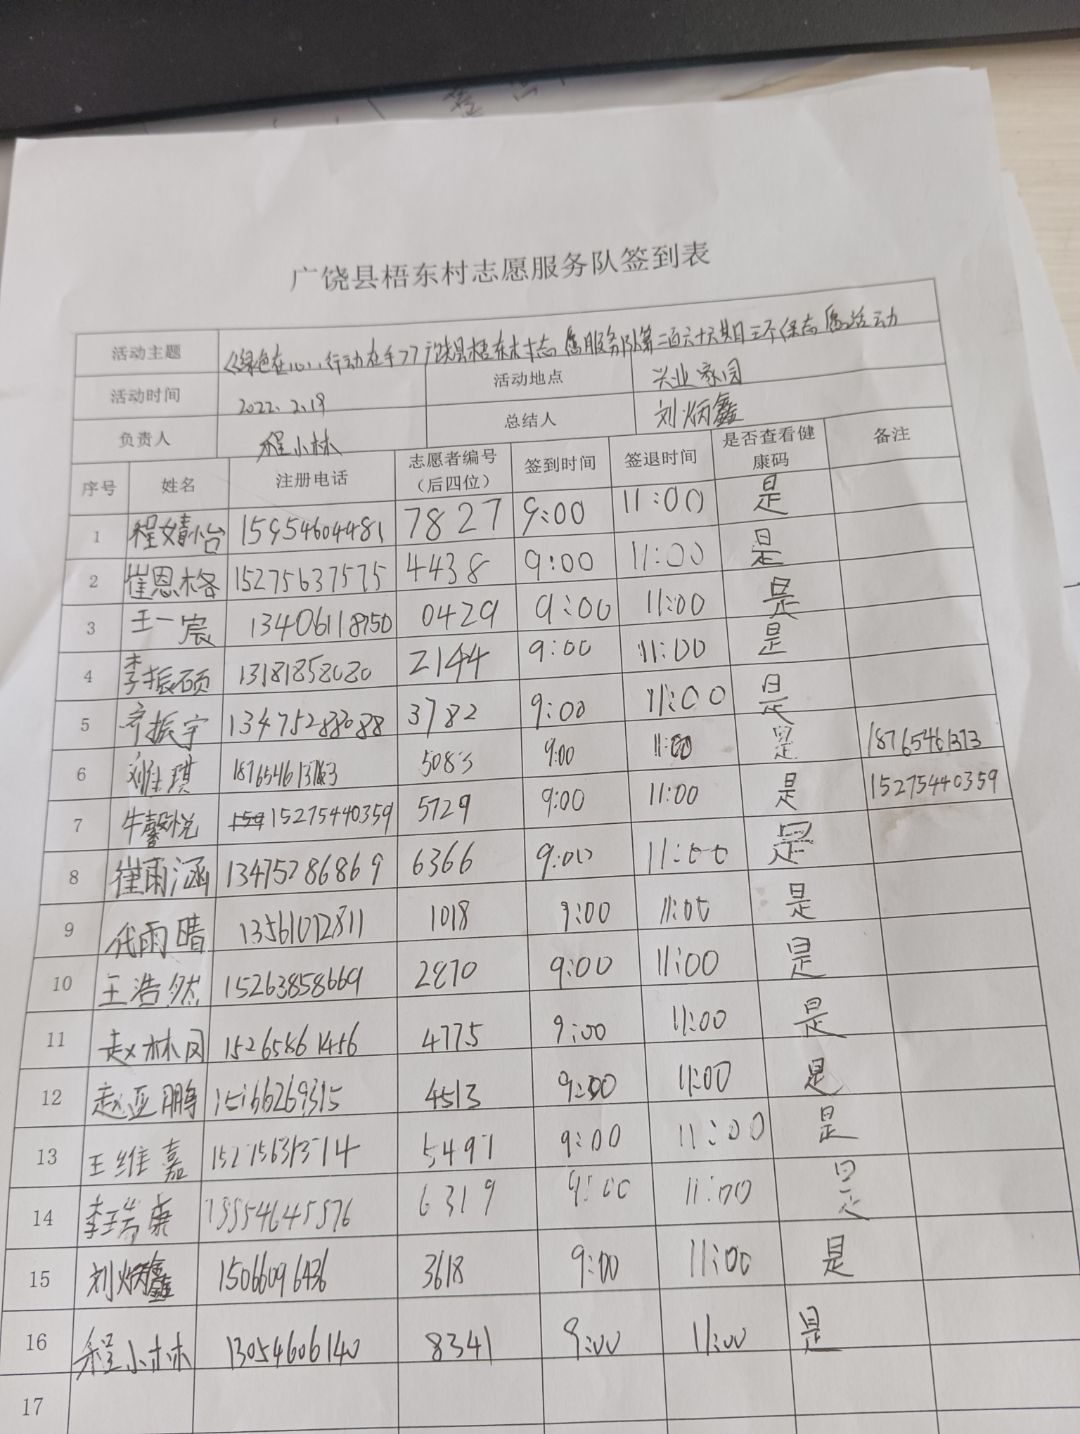 广饶县梧东村志愿服务队签到表
活动主题 《绿色在心,行动在手》广饶县梧东村志愿服务队第二百六十六期日三环保志愿活动
活动时间 2022.2.19 活动地点 兴业家园
负责人 程小林 总结人 刘炳鑫
序号 姓名 注册电话 志愿者编号(后四位) 签到时间 签退时间 是否查看健康码 备注
1 15954604481 7827 9:00 11:00 是
2 崔恩格 15275637575 4438 9:00 11:00 是
3 王一宸 13406118750 0429 9:00 11:00 是
4 李振硕 13181858080 2144 9:00 11:00 是
5 齐振宇 13475288088 3782 9:00 11:00 是
6 5083 9:00 11:00 是 18765461373
7 牛馨悦 15275440359 5729 9:00 11:00 是 15275440359
8 崔雨涵 13475286869 6366 9:00 11:00 是
9 代雨晴 13561072811 1018 9:00 11:00 是
10 王浩然 15263858669 2870 9:00 11:00 是
11 赵林冈 15265861456 4775 9:00 11:00 是
12 赵亚鹏 15166269315 4513 9:00 11:00 是
13 王维嘉 15275631314 5497 9:00 11:00 是
14 李瑞桑 6319 9:00 11:00 是
15 刘炳鑫 15066096436 3618 9:00 11:00 是
16 程小林 13054606140 8341 9:00 11:00 是
17